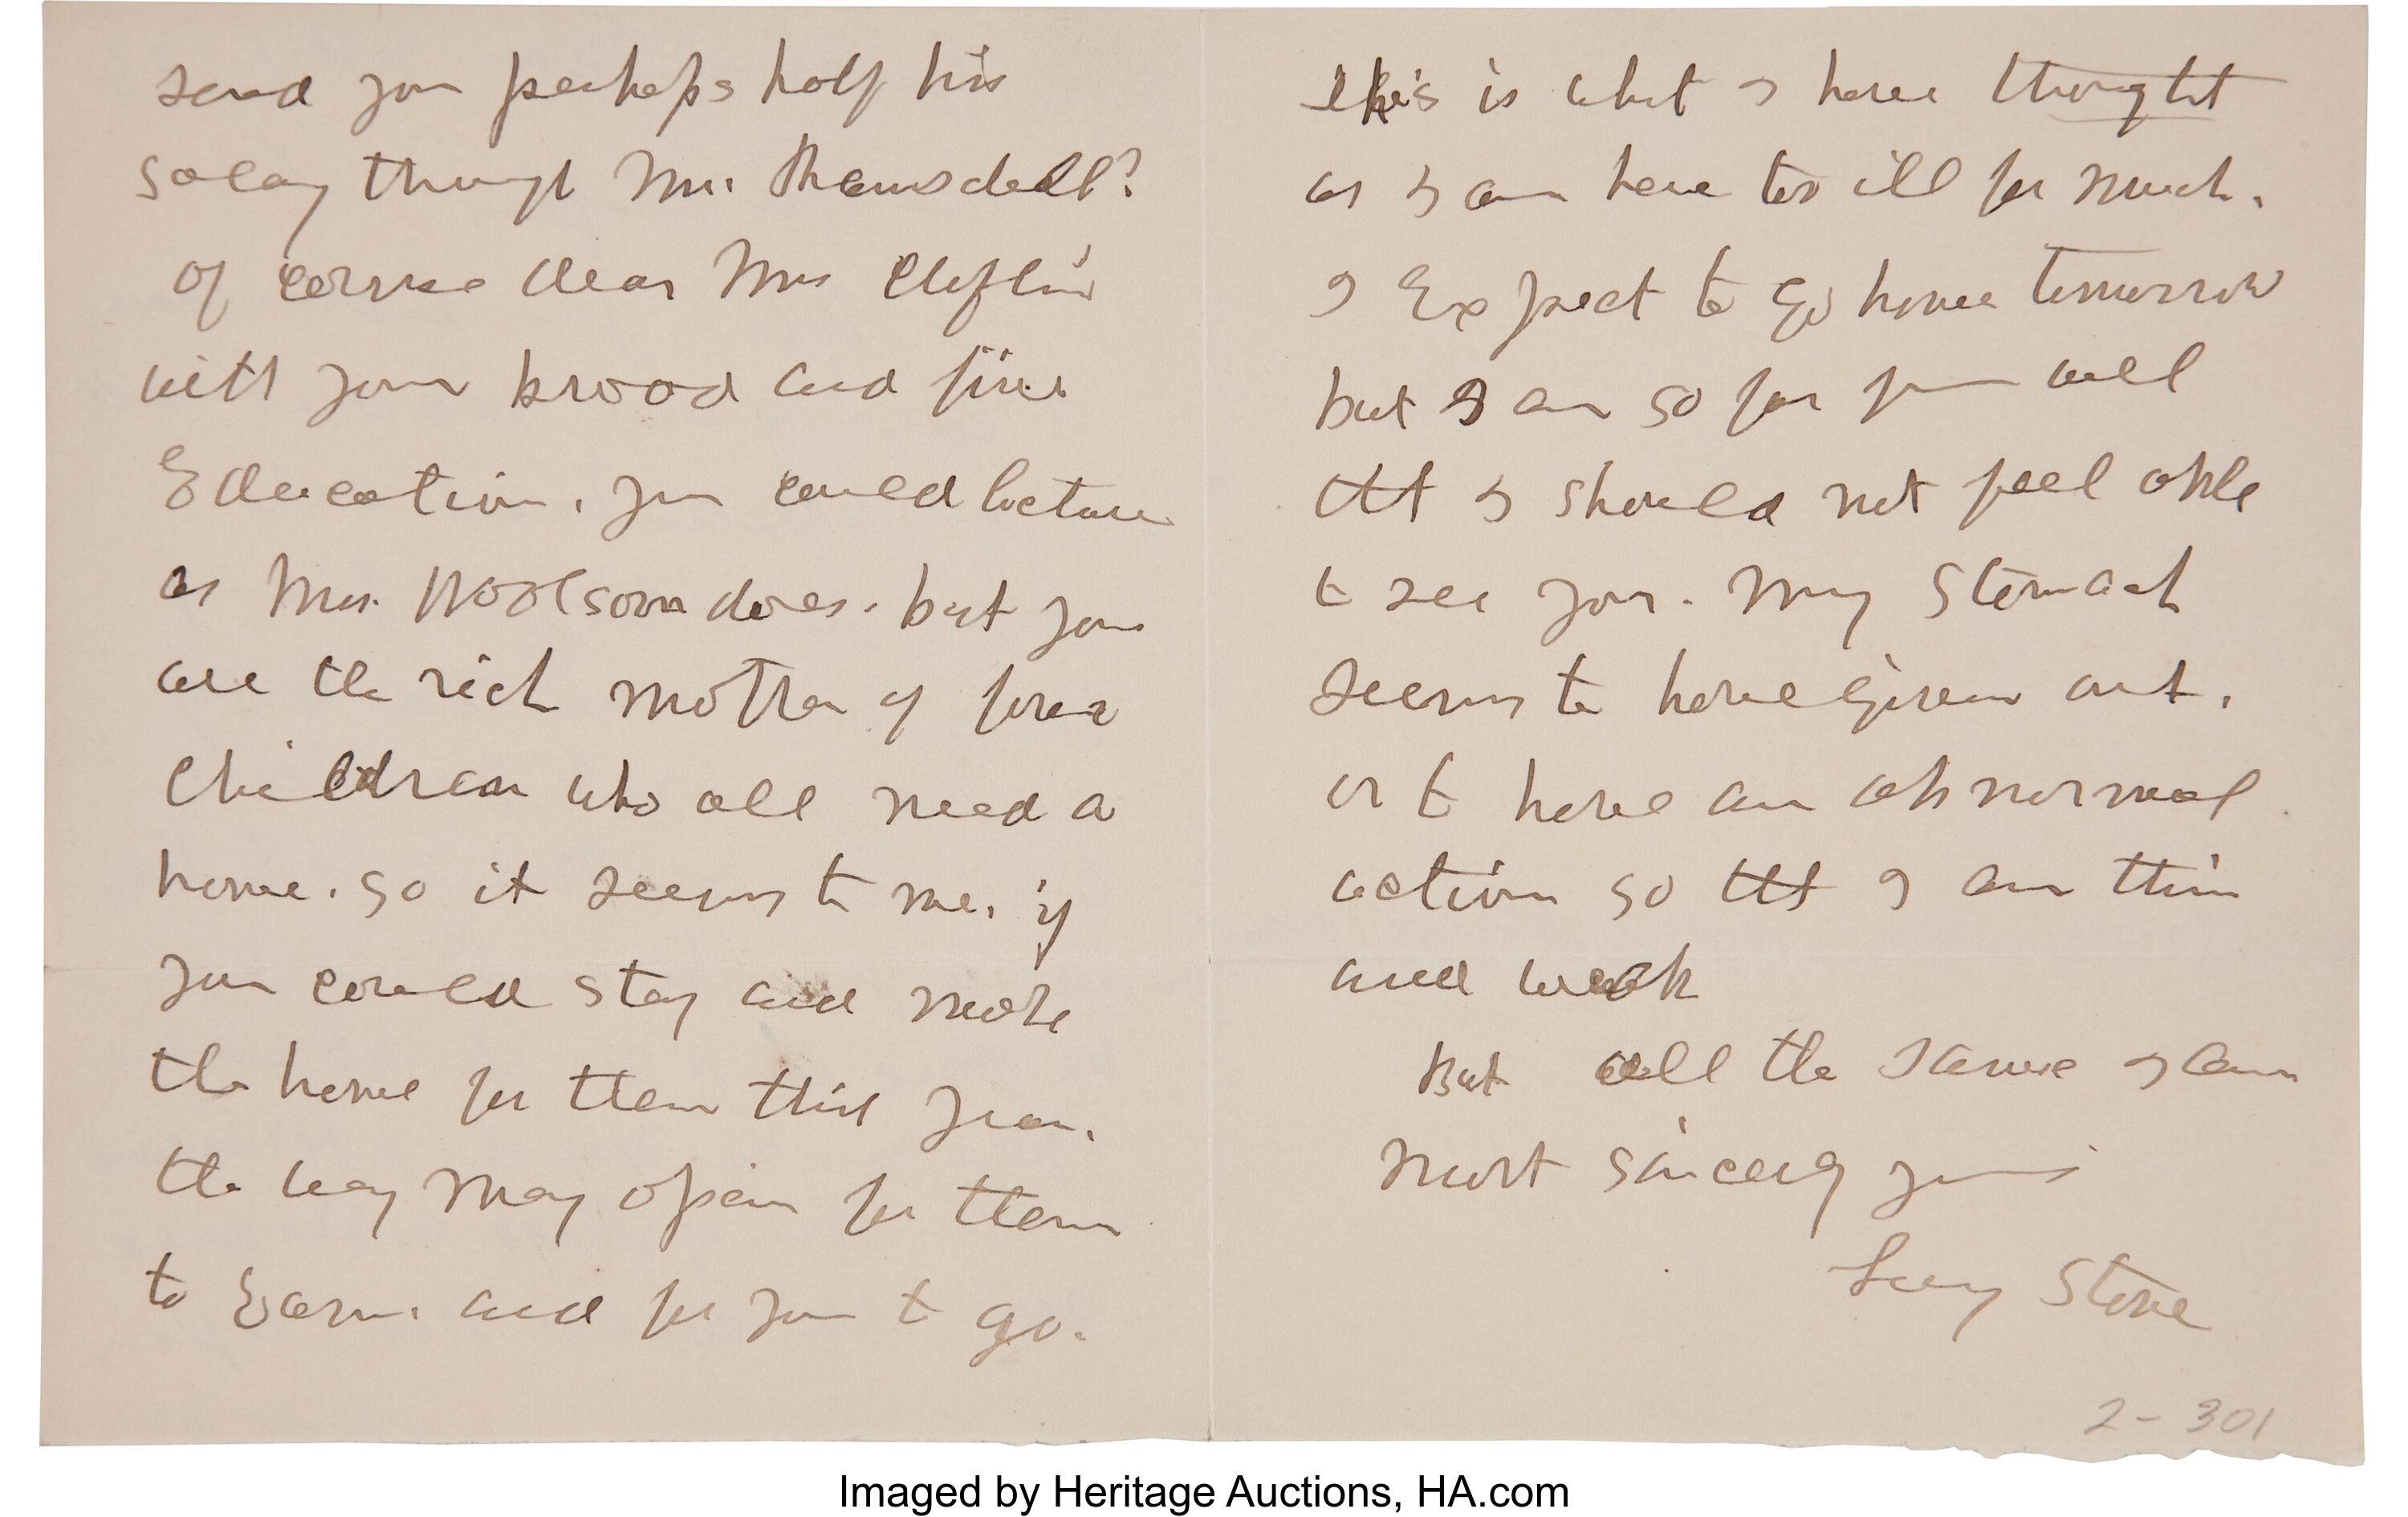 send you perhaps half his
salary through Mrs. Ramsdell?
of course dear Mrs Claflin
with your broad and fine
Education, you could lecture
as Mrs. Woolson does. but you
are the rich mother of four
Children who all need a
home. so it seems to me, if
you could stay and make
the home for them this year.
the way may open for them
to Earn. and for you to go.
this is what I have thought
as I am here too ill for much.
I Expect to go home tomorrow
but I am so far from well
tht I should not feel able
to see you. My Stomach
seems to have given out,
or to have an abnormal
action so tht I am thin
and weak
But all the same I am
most sincerely yours
Lucy Stone
2-301
Imaged by Heritage Auctions, HA.com